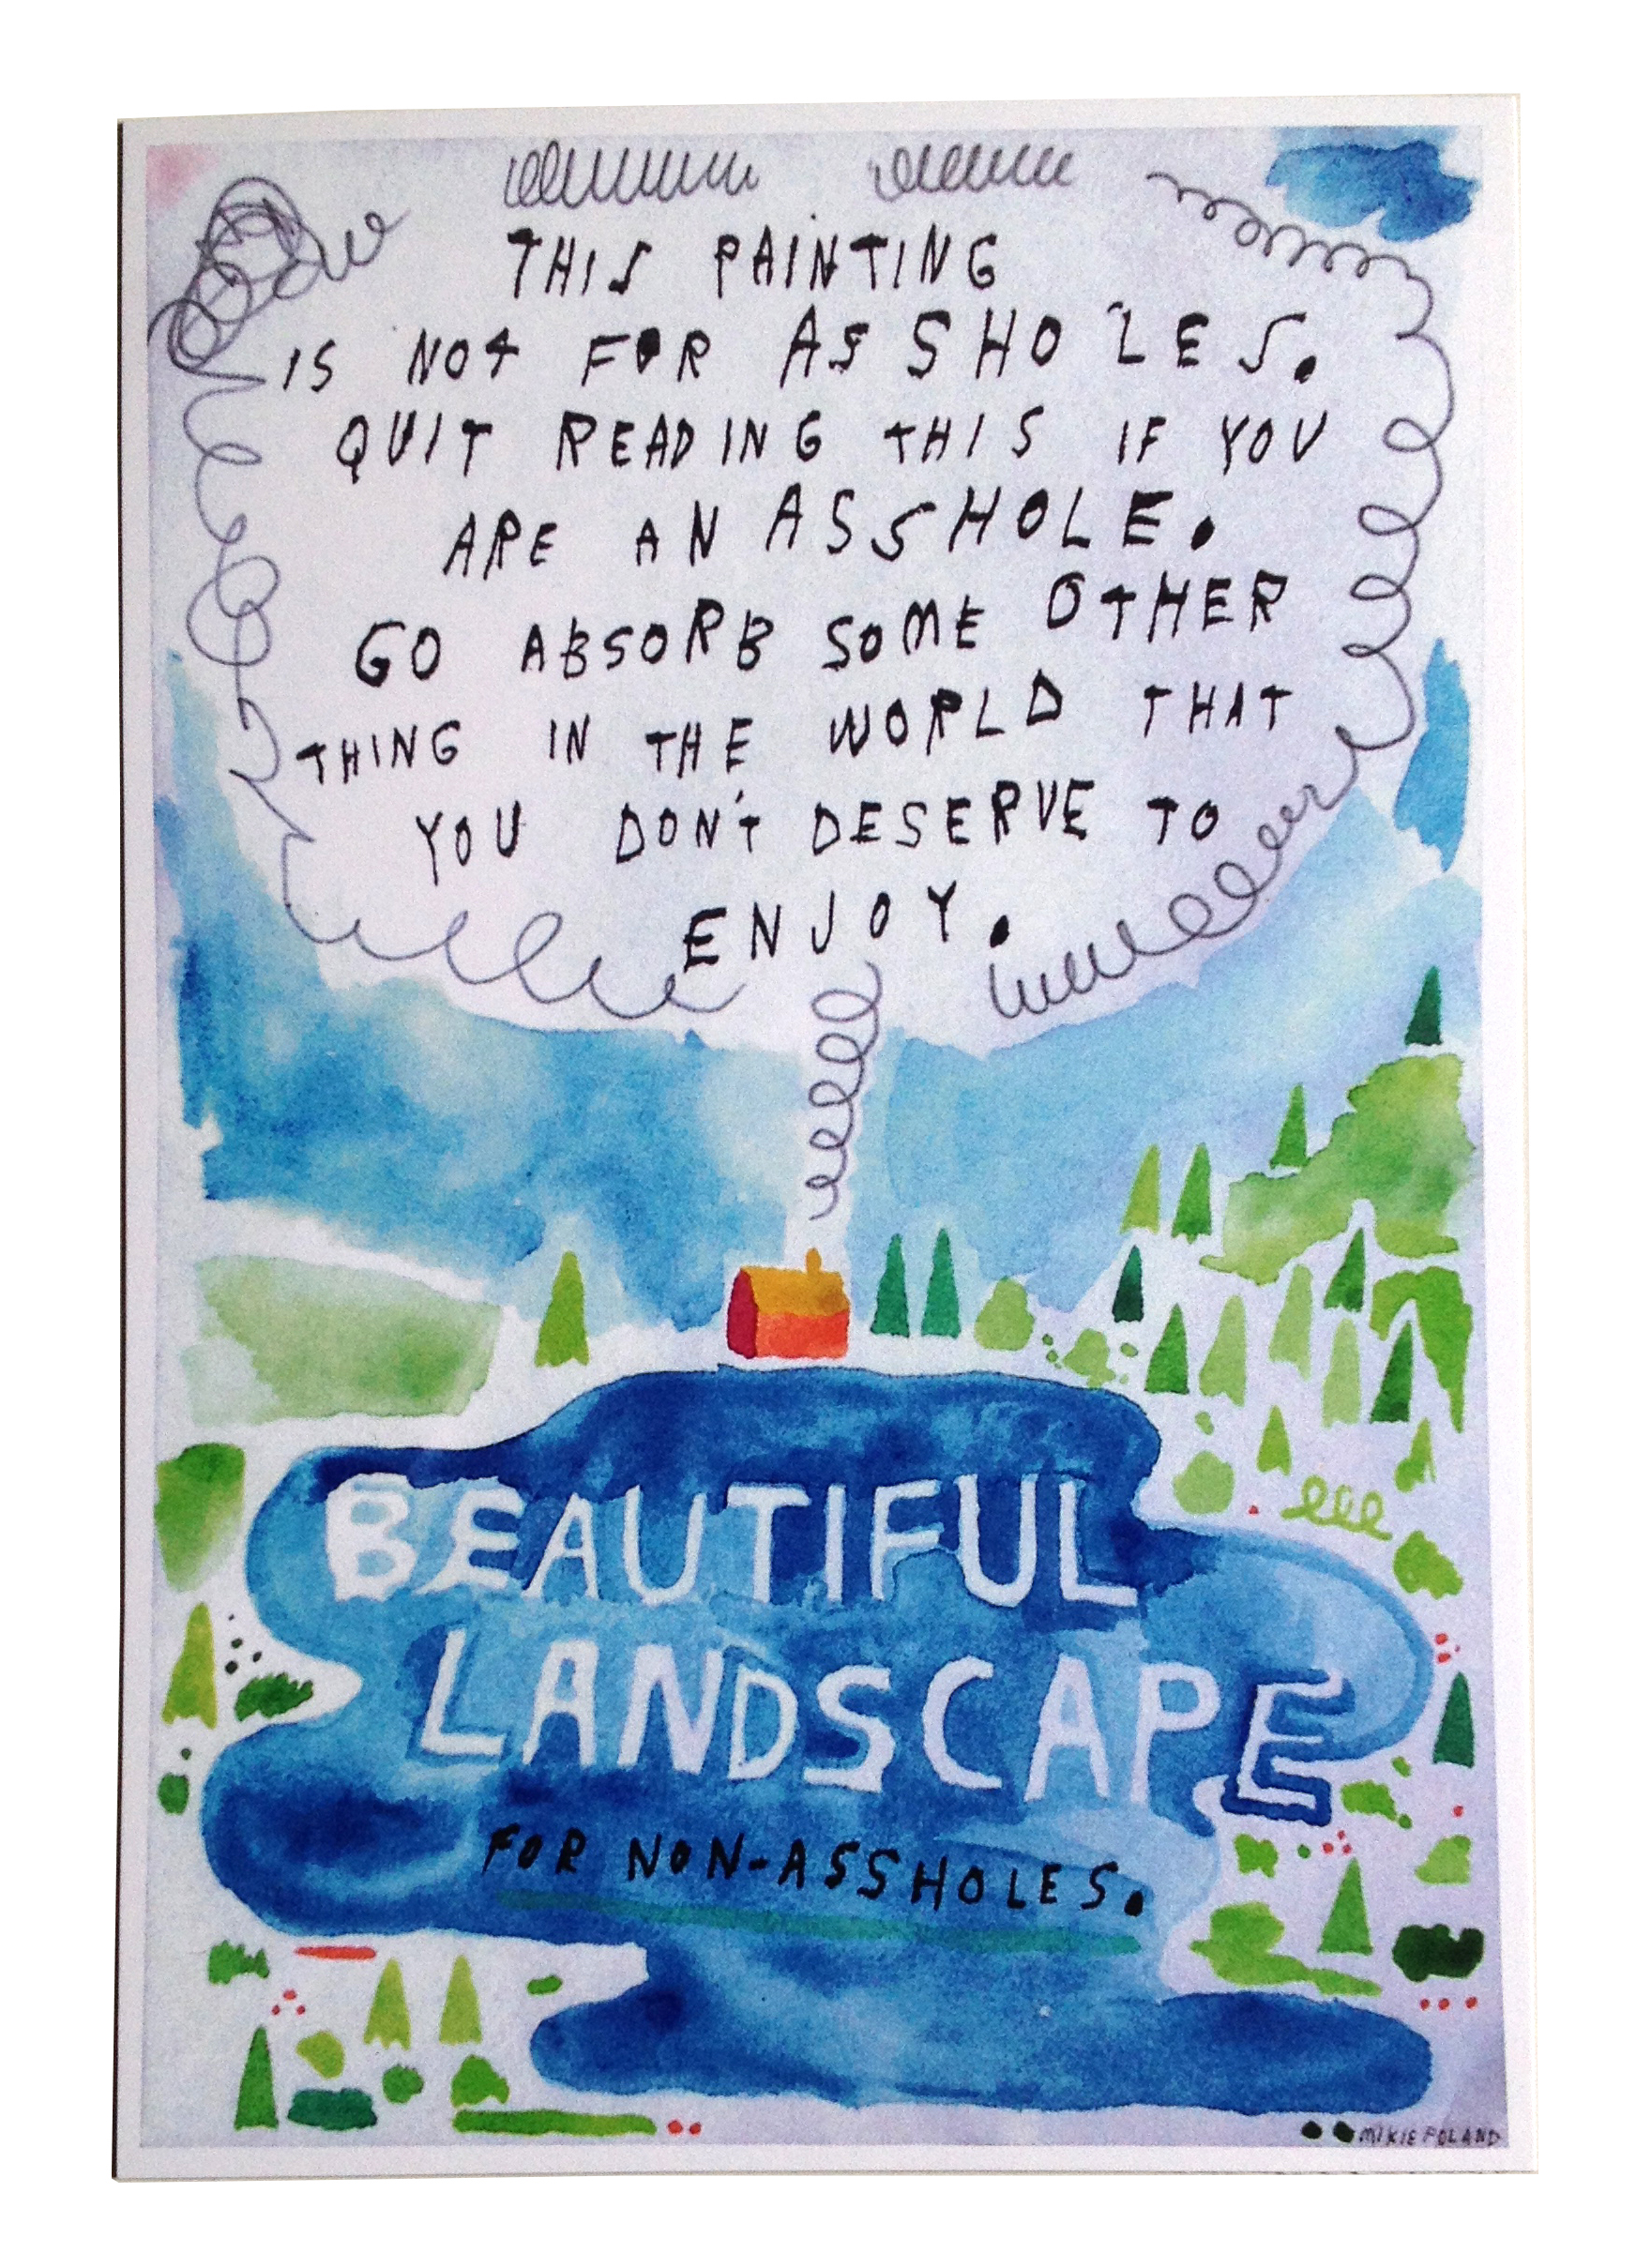 THIS PAINTING
IS NOT FOR ASSHOLES.
QUIT READING THIS IF YOU
ARE AN ASSHOLE.
GO ABSORB SOME OTHER
THING IN THE WORLD THAT
YOU DON'T DESERVE TO
ENJOY.
BEAUTIFUL
LANDSCAPE
FOR NON-ASSHOLES.
MIKIE POLAND